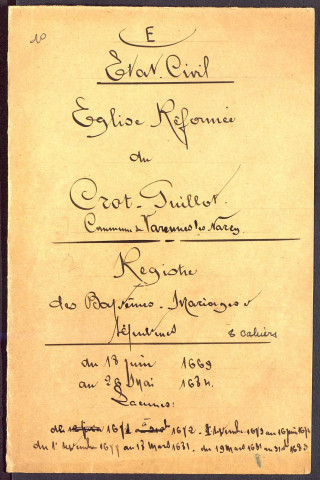 10
E
Etat Civil
Eglise Réformée
du
Crot-Guillot
Commune de Varennes les Narcy
Registre
des Baptêmes - Mariages &
Sépultures 8 cahiers
du 18 juin 1669
au 26 Mai 1684.
Lacunes:
1671 1672. 1673 au 16 juin
du 1er septembre 1677 au 13 Mars 1681. du 19 Mars 1681 au 31